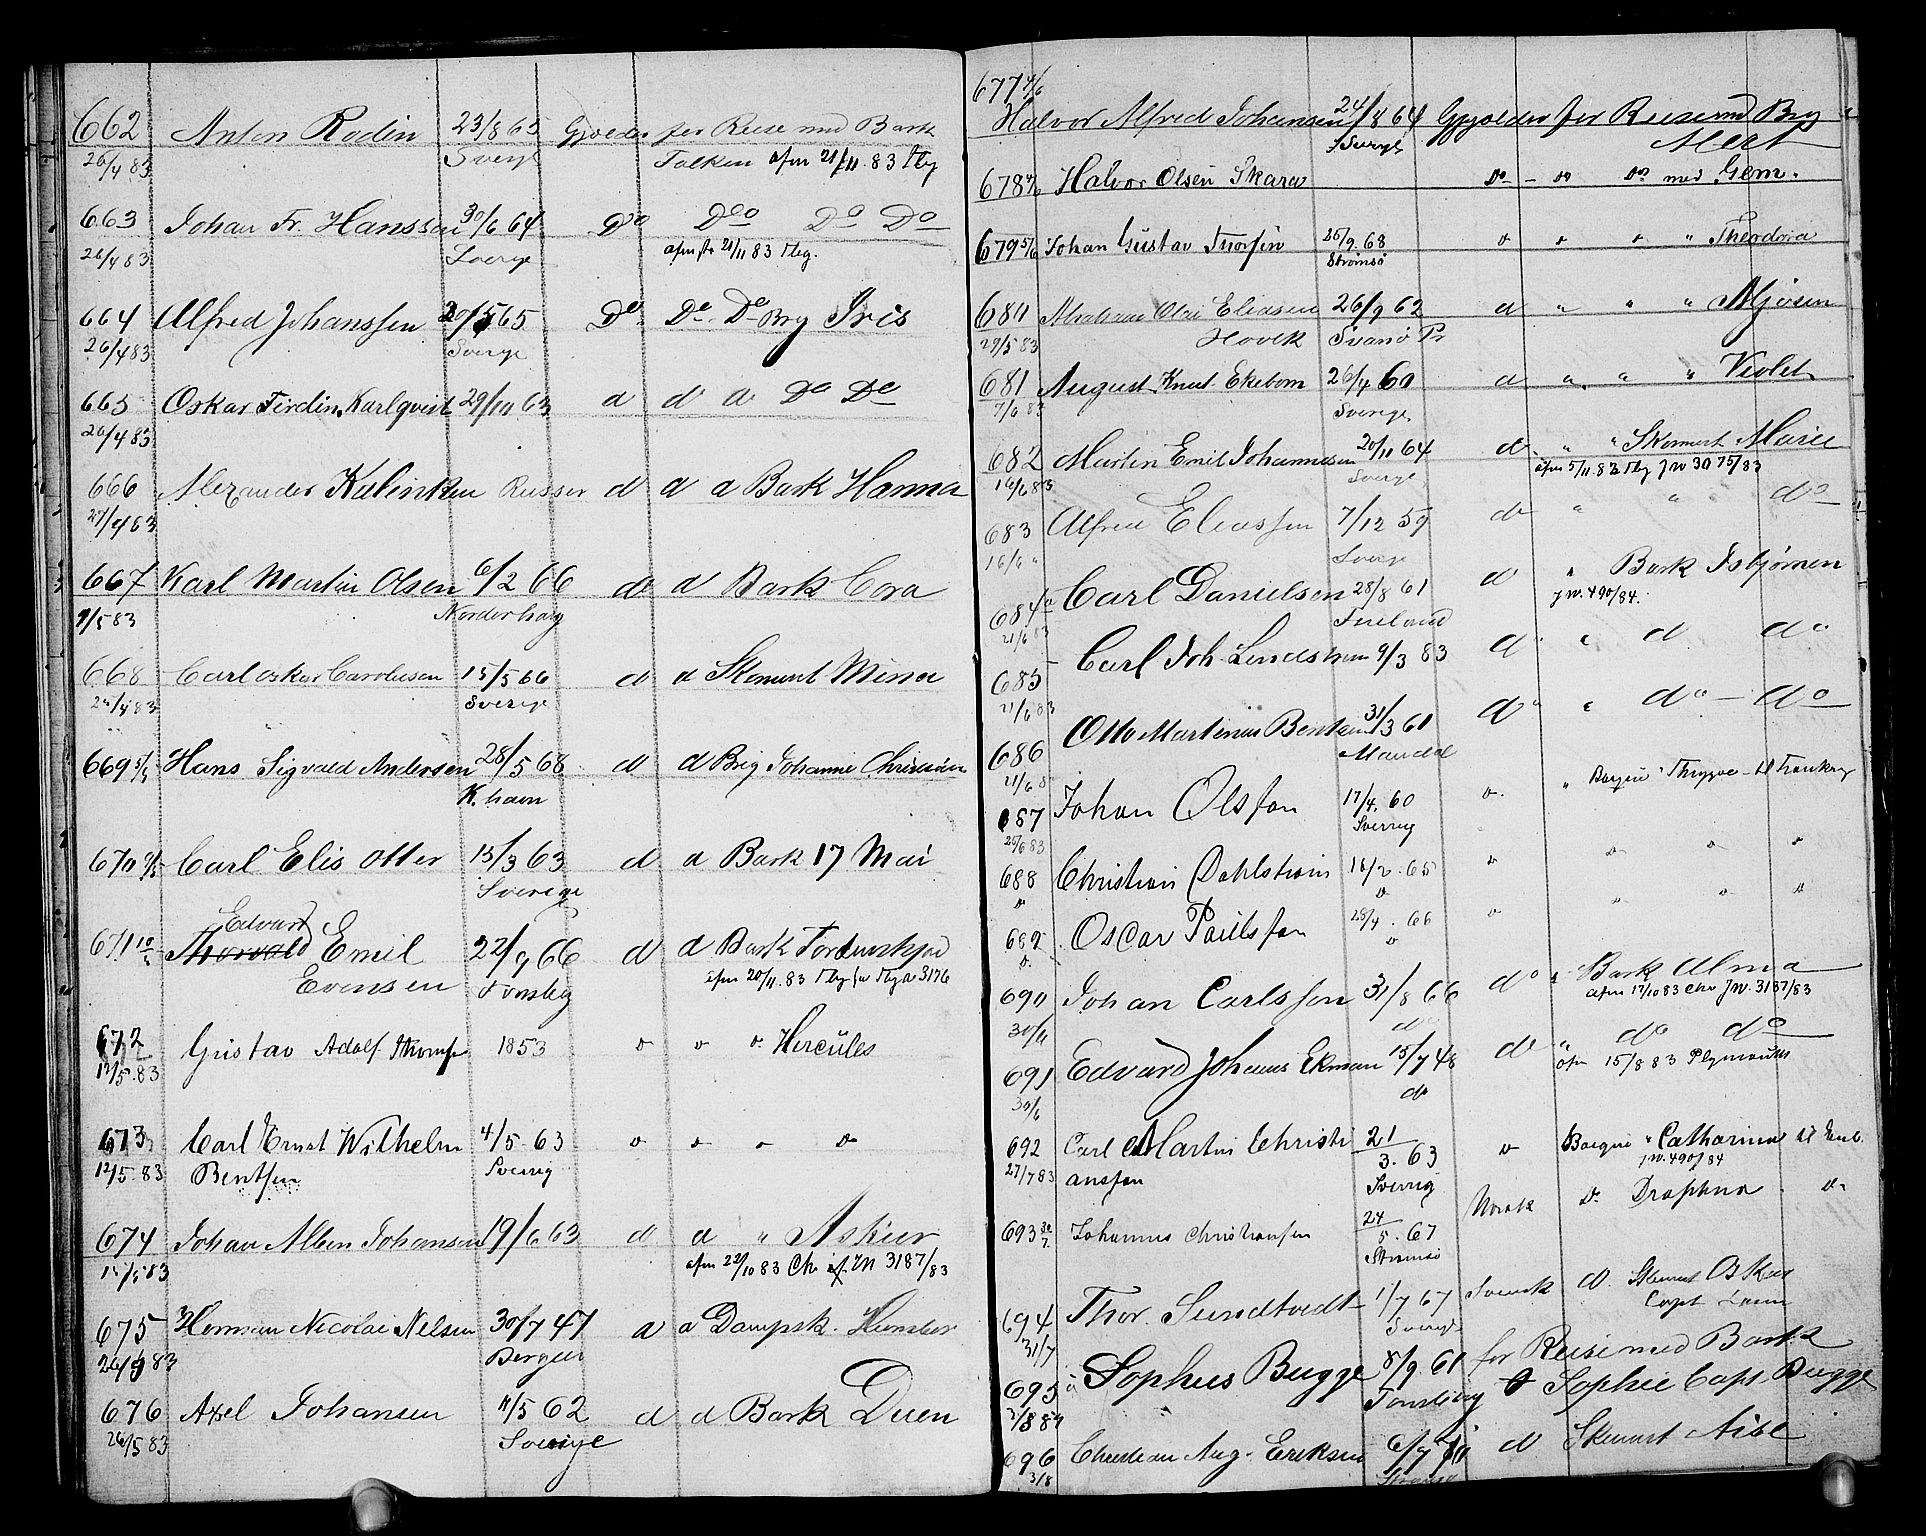 662 Anton Rodin 23/8 65 Gjælder for Reise med Bark
26/4 83 Sverge Falken afm 21/11 83 Tbg
663 Johan Fr. Hanssen 30/6 64 Do Do Do Do
26/4 83 Sverge afm fr 21/11 83 Tbg.
664 Alfred Johanssen 20/5 65 Do Do Do Brg Iris
26/4 83 Sverge
665 Oskar Ferdin. Karlqvist 29/10 63 d d d Do Do
26/4 83
666 Alexander Kalinken Russer d d d Bark Hanna
27/4 83
667 Karl Martin Olsen 6/2 66 d d Bark Cora
1/5 83 Norderhaug
668 Carl Oskar Carolusen 15/5 66 d d Skonnert Mina
Sverige
669 5/5 Hans Sigvald Andersen 28/5 68 d d Brig Johanne Christine
K.havn
670 9/5 Carl Elis Otter 13/3 63 d d Bark 17 Mai
Sverige
Edvard
671 10/5 Thorvald Emil 22/9 66 d d Bark Tordenskjold
Evensen Tonsbg afm 20/11. 83 Tbg 3176
672 Gustav Adolf 1853 " " " Hercules
12/5. 83
673 Carl Ernst Wilhelm 4/5. 63 " " " "
12/5. 83 Bentsen Sverrig
674 Johan Alben Johansen 19/6 63 d d " Askur
15/5 83 afm 22/10 83 Ch JN 3187/83
675 Herman Nicolai Nelsen 30/7 47 d d Dampsk. Humber
26/5 83 Bergen
676 Axel Johansen 11/5 62 d d Bark Duen
26/5 83 Sverige
677 4/6
Halvor Alfred Johansen 24/8 64 Gjælder for Reise med Brg
Sverge Alert
678 4/6 Halvor Olsen Skara Do - Do Do med Gem.
679 5/6 Johan Gustav Thorsin 26/9. 68 " " " " Theodora
Strømsø
680 Abraham Olai Eliasen 26/9 62 d " " " Mjøsen
29/5 83 Hovek Svanø Pr
681 August Knut Ekebom 26/4 60 d " " " Violet
7/6 83 Sverige
682 Martin Emil Johannesen 20/11 64 d " " Skonnert Marie
16/6 83 Sverge afm 5/11. 83 Tbg JN 3075/83
683 Alfred Eliassen 7/12 59 d " " do
16/6 " Sverge
684 Carl Danielsen 28/8 61 d " Bark Isbjørnen
21/6 83 Finland JN. 490/84.
685 Carl Joh. Lindstrøm 9/3 83 d " d do
21/6 83
686 Otto Martinius Bentsen 31/3 61 do " do - do
21/6 8 Mandal
687 Johan Olsson 17/4. 60 " " Barque "Thrygve" til Frankrig
25/6 83 Sverrig
688 Christian Dahlstrøm 16/2. 65 " " " "
" "
689 Oscar Paulsson 28/4. 66 " " " "
" "
690 Johan Carlsson 31/8 66 do " Bark Alma
30/6 do afm 17/10 83 Chr JN. 3187/83
691 Edvard Johanes Ekman 15/7 48 d " do do
30/6 do afm 15/8 83 Plymouth
692 Carl Martin Christi 21/3. 63 " Barque "Catharina" til Engl.
27/7 83 ansson Sverrig JN. 490/84
693 30/7 Johannes Christiansen 24/5. 67 Norsk Do Draphna "
Strømsø
694 Thor. Sundtvedt 1/7 67 Svensk d. Skonnert Oskar
31/7 Sverige Capt
695 Sophus Bugge 8/9. 61 for Reise med Bark
2/8 84 Tonsberg Sophie Capt Bugge
696 Christian Aug. Eriksen 6/9 70 d Skonnert
3/8 Strømsø